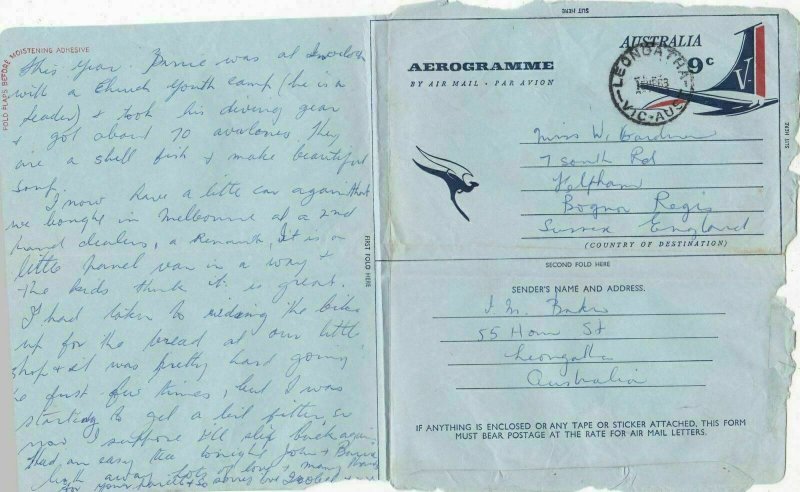 FOLD FLAPS BEFORE MOISTENING ADHESIVE
this year. Barrie was at Inverloch
with a Church Youth camp (he is a
leader) & took his diving gear
& got about 70 avalones they
are a shell fish & make beautiful
soup.
I now have a little car again that
we bought in Melbourne at a 2nd
hand dealers, a Renault, It is a
little panel van in a way &
the kids think it is great.
I had taken to riding the bike
up for the bread at our little
shop & it was pretty hard going
the first few times, but I was
starting to get a bit fitter, so
now I suppose I'll slip back again
Had an easy tea tonight John & Barrie
both away Lots of love & many thanks
for your parcel & so sorry
SLIT HERE
AEROGRAMME
BY AIR MAIL · PAR AVION
AUSTRALIA
9c
LEONGATHA
VIC-AUST
Miss W. Gardner
7 South Rd
Felpham
Bognor Regis
Sussex England
(COUNTRY OF DESTINATION)
SLIT HERE
FIRST FOLD HERE
SECOND FOLD HERE
SENDER'S NAME AND ADDRESS.
I. M. Baker
55 Horn St
Leongatha
Australia
IF ANYTHING IS ENCLOSED OR ANY TAPE OR STICKER ATTACHED, THIS FORM
MUST BEAR POSTAGE AT THE RATE FOR AIR MAIL LETTERS.